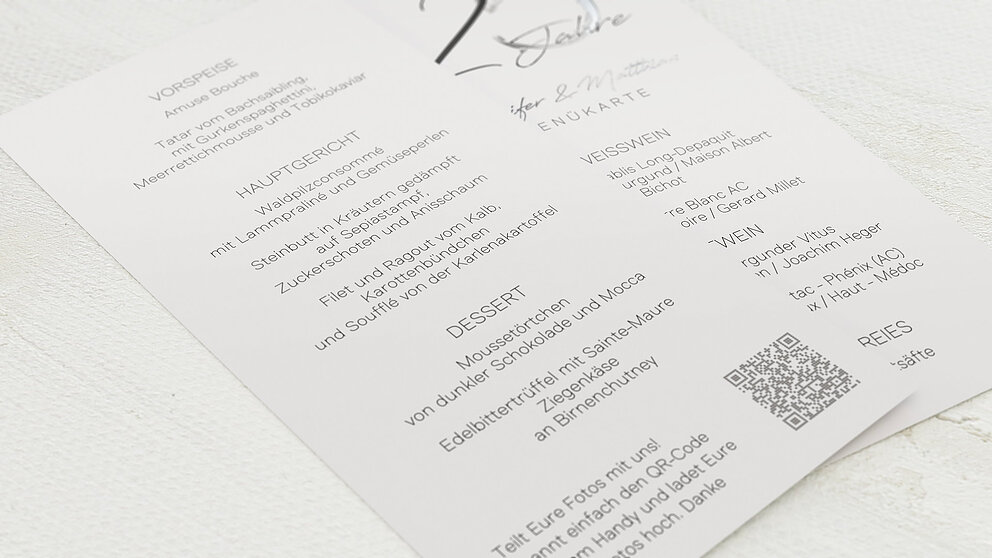 VORSPEISE
Amuse Bouche
Tatar vom Bachsaibling,
mit Gurkenspaghettini,
Meerrettichmousse und Tobikokaviar
HAUPTGERICHT
Waldpilzconsommé
mit Lammpraliné und Gemüseperlen
Steinbutt in Kräutern gedämpft
auf Sepiastampf,
Zuckerschoten und Anisschaum
Filet und Ragout vom Kalb,
Karottenbündchen
und Soufflé von der Karlenakartoffel
DESSERT
Moussetörtchen
von dunkler Schokolade und Mocca
Edelbittertrüffel mit Sainte-Maure
Ziegenkäse
an Birnenchutney
Teilt Eure Fotos mit uns!
annt einfach den QR-Code
m Handy und ladet Eure
otos hoch. Danke
25
Jahre
ifer & Matthias
ENÜKARTE
VEISSWEIN
blis Long-Depaquit
urgund / Maison Albert
Bichot
re Blanc AC
oire / Gerard Millet
WEIN
rgunder Vitus
n / Joachim Heger
tac - Phénix (AC)
ix / Haut - Médoc
REIES
säfte